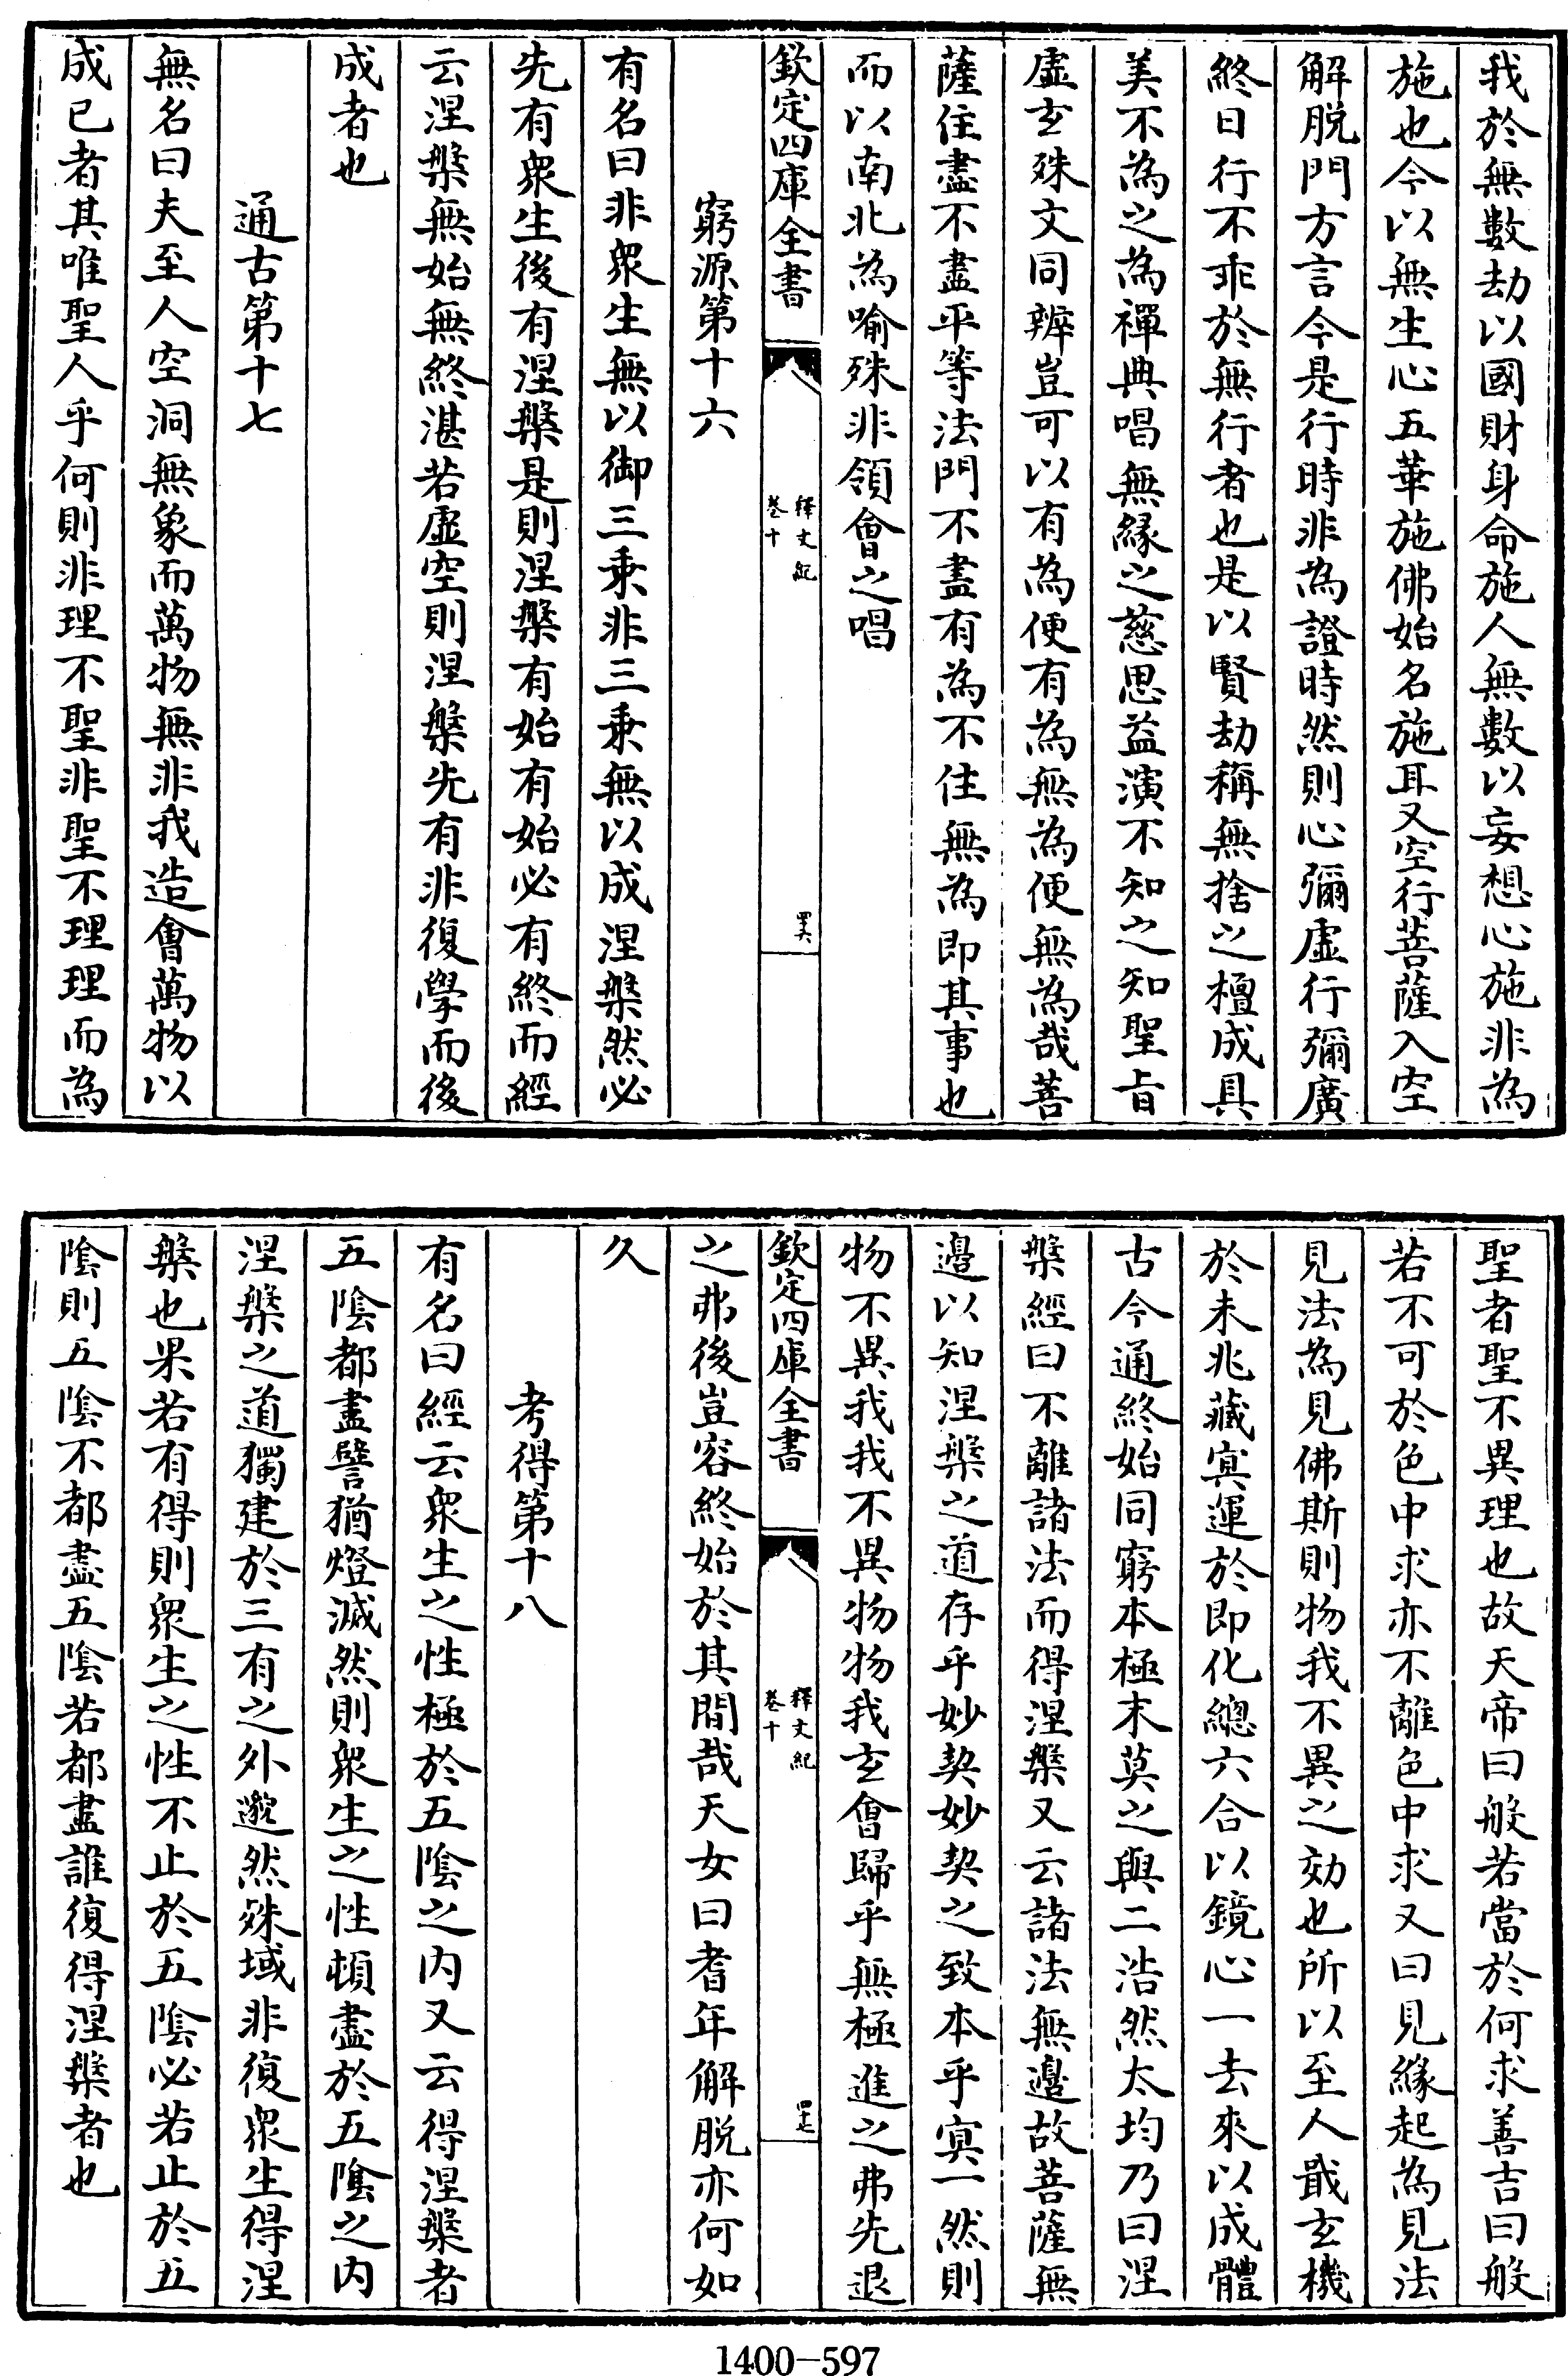 我於無數劫以國財身命施人無數以妄想心施非為
施也今以無生心五華施佛始名施耳又空行菩薩入空
解脱門方言今是行時非為證時然則心彌虛行彌廣
終日行不乖於無行者也是以賢劫稱無捨之檀成具
美不為之為禪典唱無緣之慈思益演不知之知聖㫖
虛玄殊文同辨豈可以有為便有為無為便無為哉菩
薩住盡不盡平等法門不盡有為不住無為即其事也
而以南北為喻殊非領會之唱
欽定四庫全書
釋文紀
卷十
四六
窮源第十六
有名曰非衆生無以御三乘非三乘無以成涅槃然必
先有衆生後有涅槃是則涅槃有始有始必有終而經
云涅槃無始無終湛若虛空則涅槃先有非復學而後
成者也
通古第十七
無名曰夫至人空洞無象而萬物無非我造會萬物以
成已者其唯聖人乎何則非理不聖非聖不理理而為
聖者聖不異理也故天帝曰般若當於何求善吉曰般
若不可於色中求亦不離色中求又曰見緣起為見法
見法為見佛斯則物我不異之効也所以至人戢玄機
於未兆藏㝠運於即化總六合以鏡心一去來以成體
古今通終始同窮本極末莫之與二浩然太均乃曰涅
槃經曰不離諸法而得涅槃又云諸法無邊故菩薩無
邊以知涅槃之道存乎妙契妙契之致本乎㝠一然則
物不異我我不異物物我玄會歸乎無極進之弗先退
欽定四庫全書
釋文紀
卷十
四七
之弗後豈容終始於其間哉天女曰耆年解脱亦何如
久
考得第十八
有名曰經云衆生之性極於五陰之内又云得涅槃者
五陰都盡譬猶燈滅然則衆生之性頓盡於五陰之内
涅槃之道獨建於三有之外邈然殊域非復衆生得涅
槃也果若有得則衆生之性不止於五陰必若止於五
陰則五陰不都盡五陰若都盡誰復得涅槃者也
1400-597